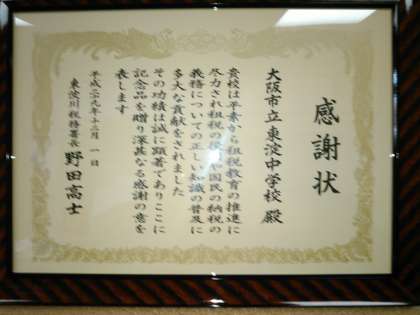 感謝状
大阪市立東淀中学校 殿
貴校は平素から租税教育の推進に
尽力され租税の役 や国民の納税の
義務についての正しい知識の普及に
多大な貢献をされました
その功績は誠に顕著でありここに
記念品を贈り深甚なる感謝の意を
表します
平成二九年十二月一日
東淀川税務署長 野田高士